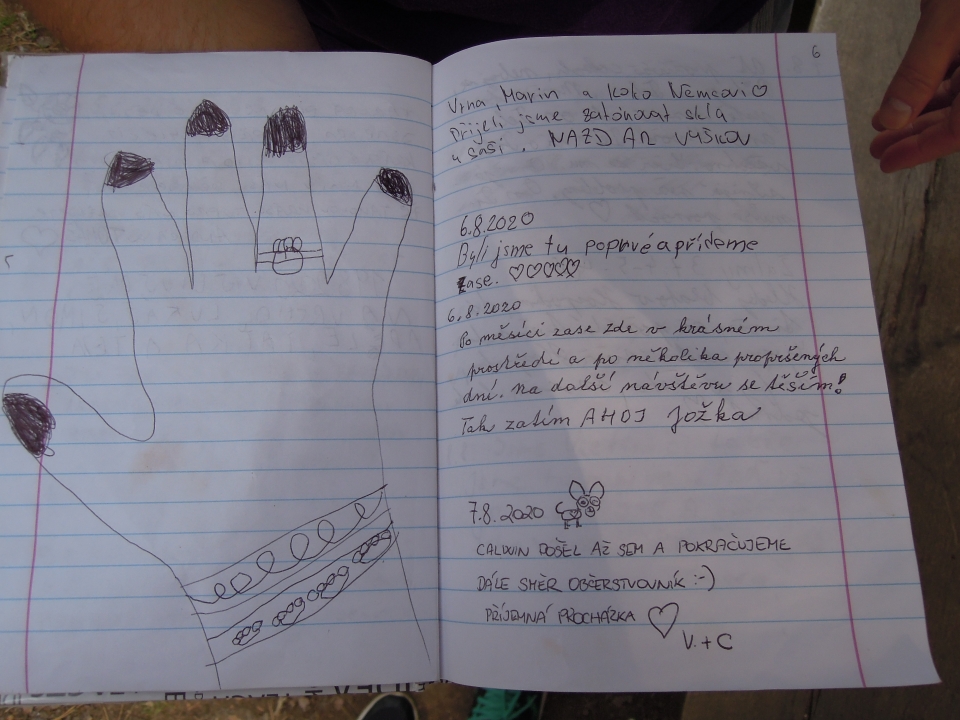 6
Vrna, Marin a Koko Němcovi ♡
Přijeli jsme zatónovat skla
u Saši. NAZDAR VYŠKOV
6.8.2020
Byli jsme tu poprvé a přídeme
zase. ♡♡♡♡♡
6.8.2020
Po měsíci zase zde v krásném
prostředí a po několika propršených
dní. Na další návštěvu se těším!
Tak zatím AHOJ Jožka
7.8.2020
CALWIN DOŠEL AŽ SEM A POKRAČUJEME
DÁLE SMĚR OBČERSTVOVNÍK :-)
PŘÍJEMNÁ PROCHÁZKA ♡
V. + C